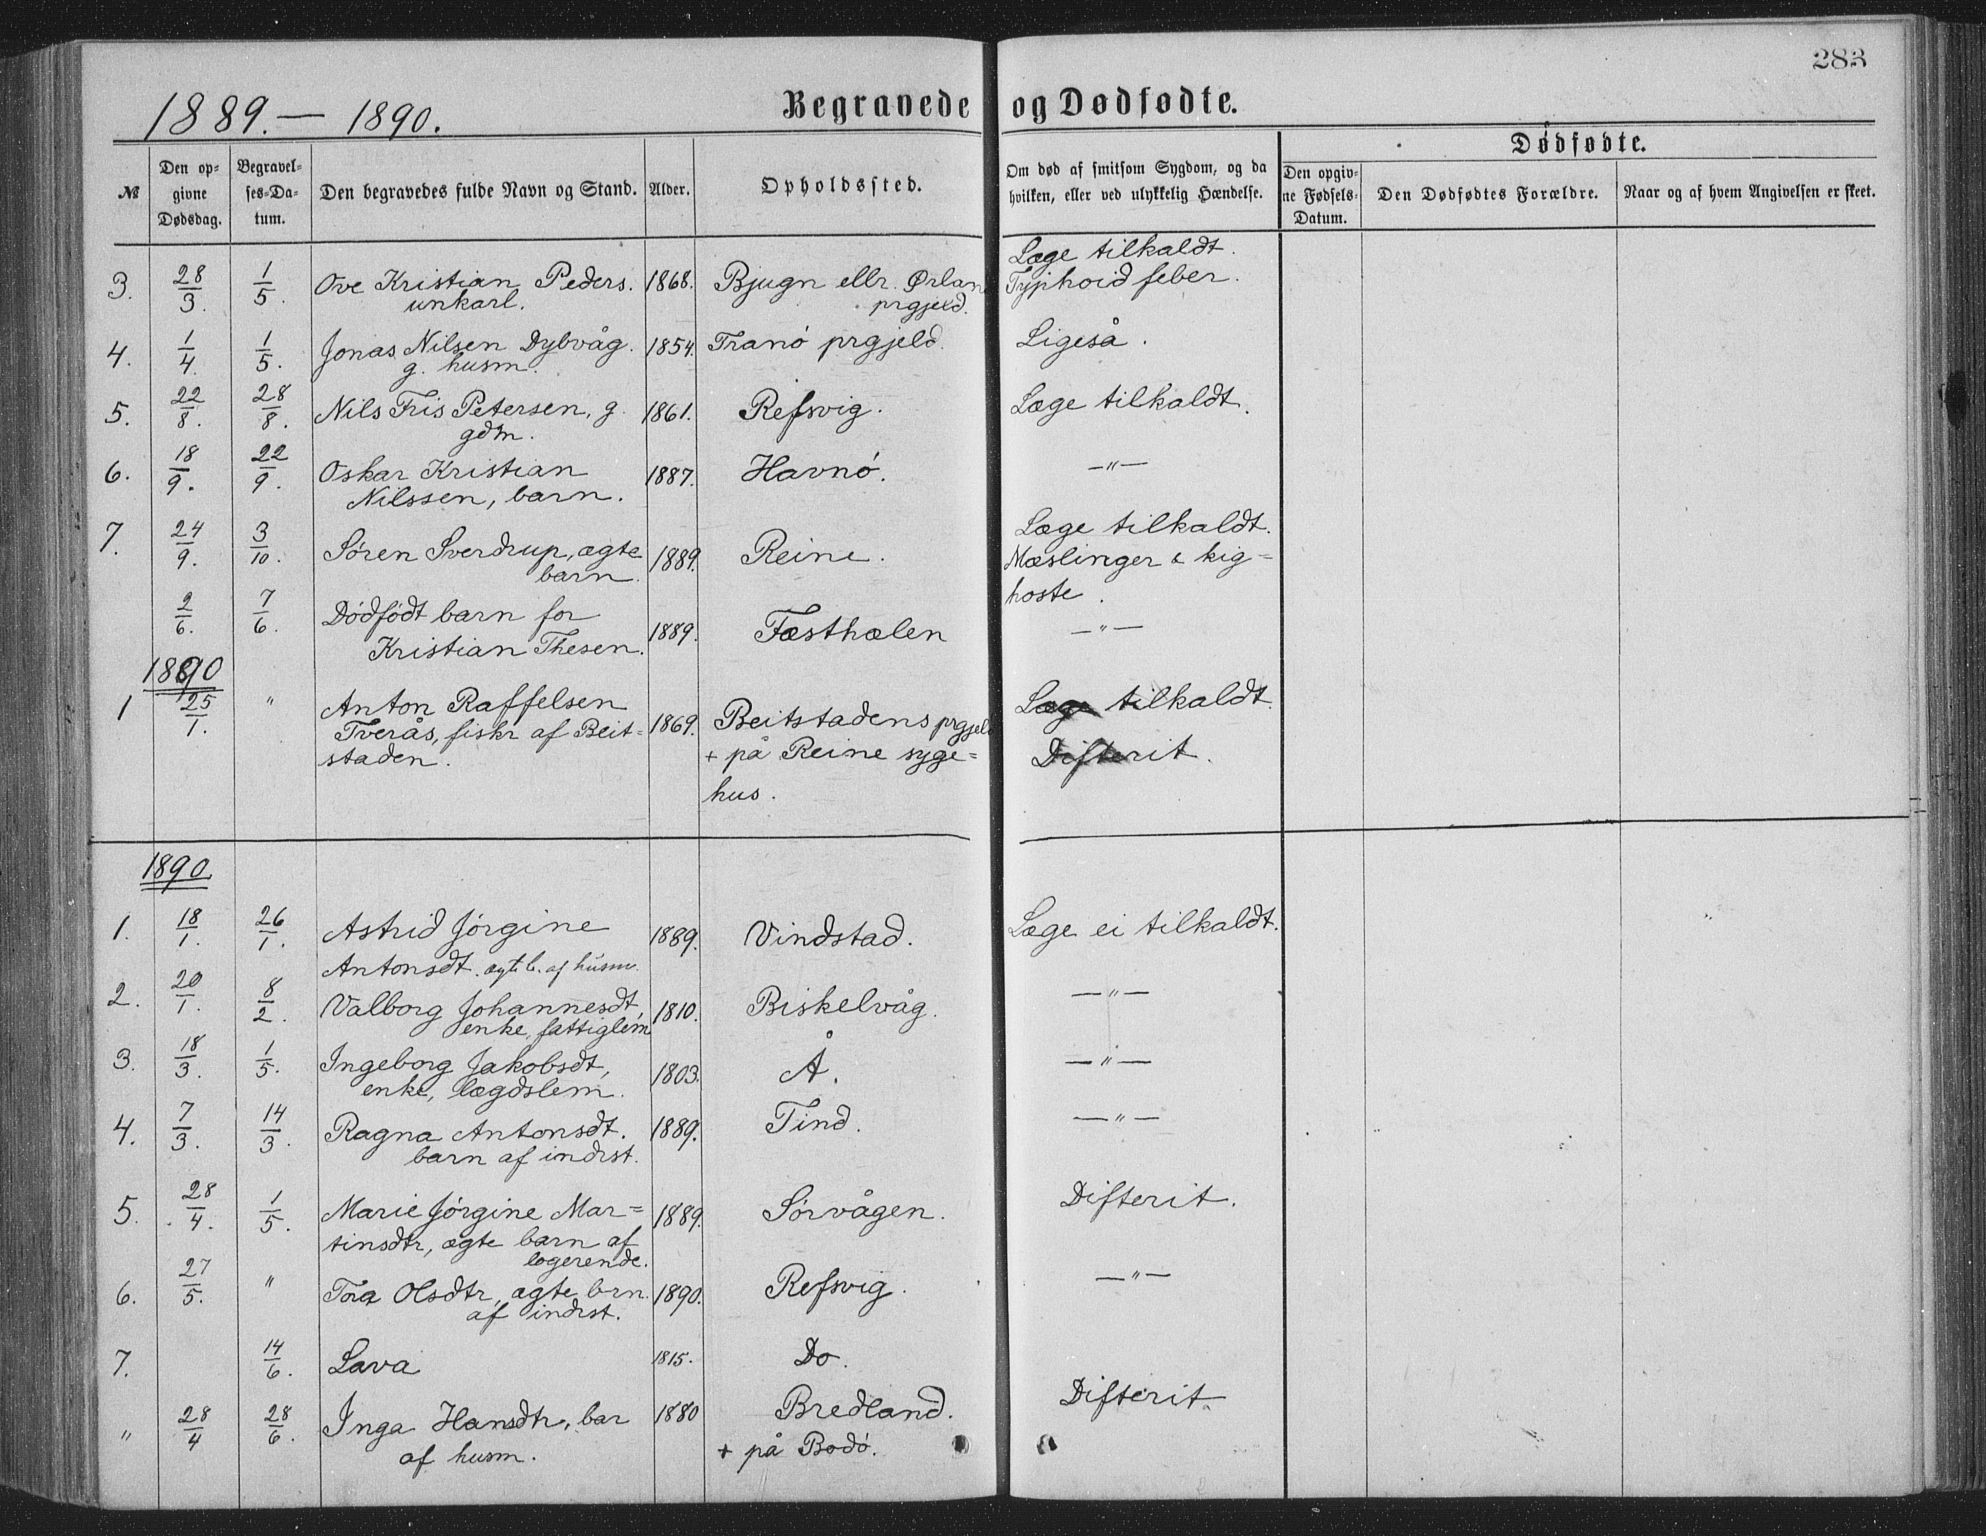 283
1889. — 1890. Begravede og Dødfødte.
№
Den op-
givne
Dødsdag.
Begravel-
ses-Da-
tum.
Den begravedes fulde Navn og Stand.
Alder.
Opholdssted.
Om død af smitsom Sygdom, og da
hvilken, eller ved ulykkelig Hændelse.
Dødfødte.
Den opgiv-
ne Fødsels-
Datum.
Den Dødfødtes Forældre.
Naar og af hvem Angivelsen er skeet.
Læge tilkaldt.
3. 28/3. 1/5. Ove Kristian Peders. 1868. Bjugn ellr Ørlan Typhoid feber.
unkarl. prgjeld.
4. 1/4. 1/5. Jonas Nilsen Dybvåg. 1854. Tranö prgjeld. Ligeså.
g. husm.
5. 22/8. 28/8. Nils Fris Petersen, g. 1861. Refsvig. Læge tilkaldt.
gdm.
6. 18/9. 22/9. Oskar Kristian 1887. Havnö. —"—
Nilssen, barn.
7. 24/9. 3/10. Læge tilkaldt.
Sören Sverdrup, ægte 1889. Reine. Mæslinger & kig-
barn. hoste.
2/6. 7/6. Dödfödt barn for 1889. Fæsthælen —"—
Kristian Thesen.
1890
1 25/1. " Anton Raffelsen Læge tilkaldt.
Tverås, fiskr af Beit- 1869. Beitstadens prgjeld
staden. + på Reine syge- Difterit.
hus.
1890.
1. 18/1. 26/1. Astrid Jörgine 1889. Vindstad. Læge ei tilkaldt.
Antonsdt. ægt. b. af husm.
2. 20/1. 8/2. Valborg Johannesdt, 1810. Biskelvåg. —"—
enke, fattiglem
3. 18/3. 1/5. Ingeborg Jakobsdt, 1803. Å. —"—
enke, lægdslem.
4. 7/3. 14/3. Ragna Antonsdt. 1889. Tind. —"—
barn af indrst.
5. 28/4. 1/5. Marie Jörgine Mar- 1889. Sörvågen. Difterit.
tinsdtr, ægte barn af
logerende.
6. 27/5. " Tora Olsdtr, ægte brn. 1890. Refsvig. —"—
af indrst.
7. 14/6. Lava 1815. Do.
" 28/4 28/6. Inga Hansdtr, bar 1880 Bredland. Difterit.
af husm. + på Bodö.